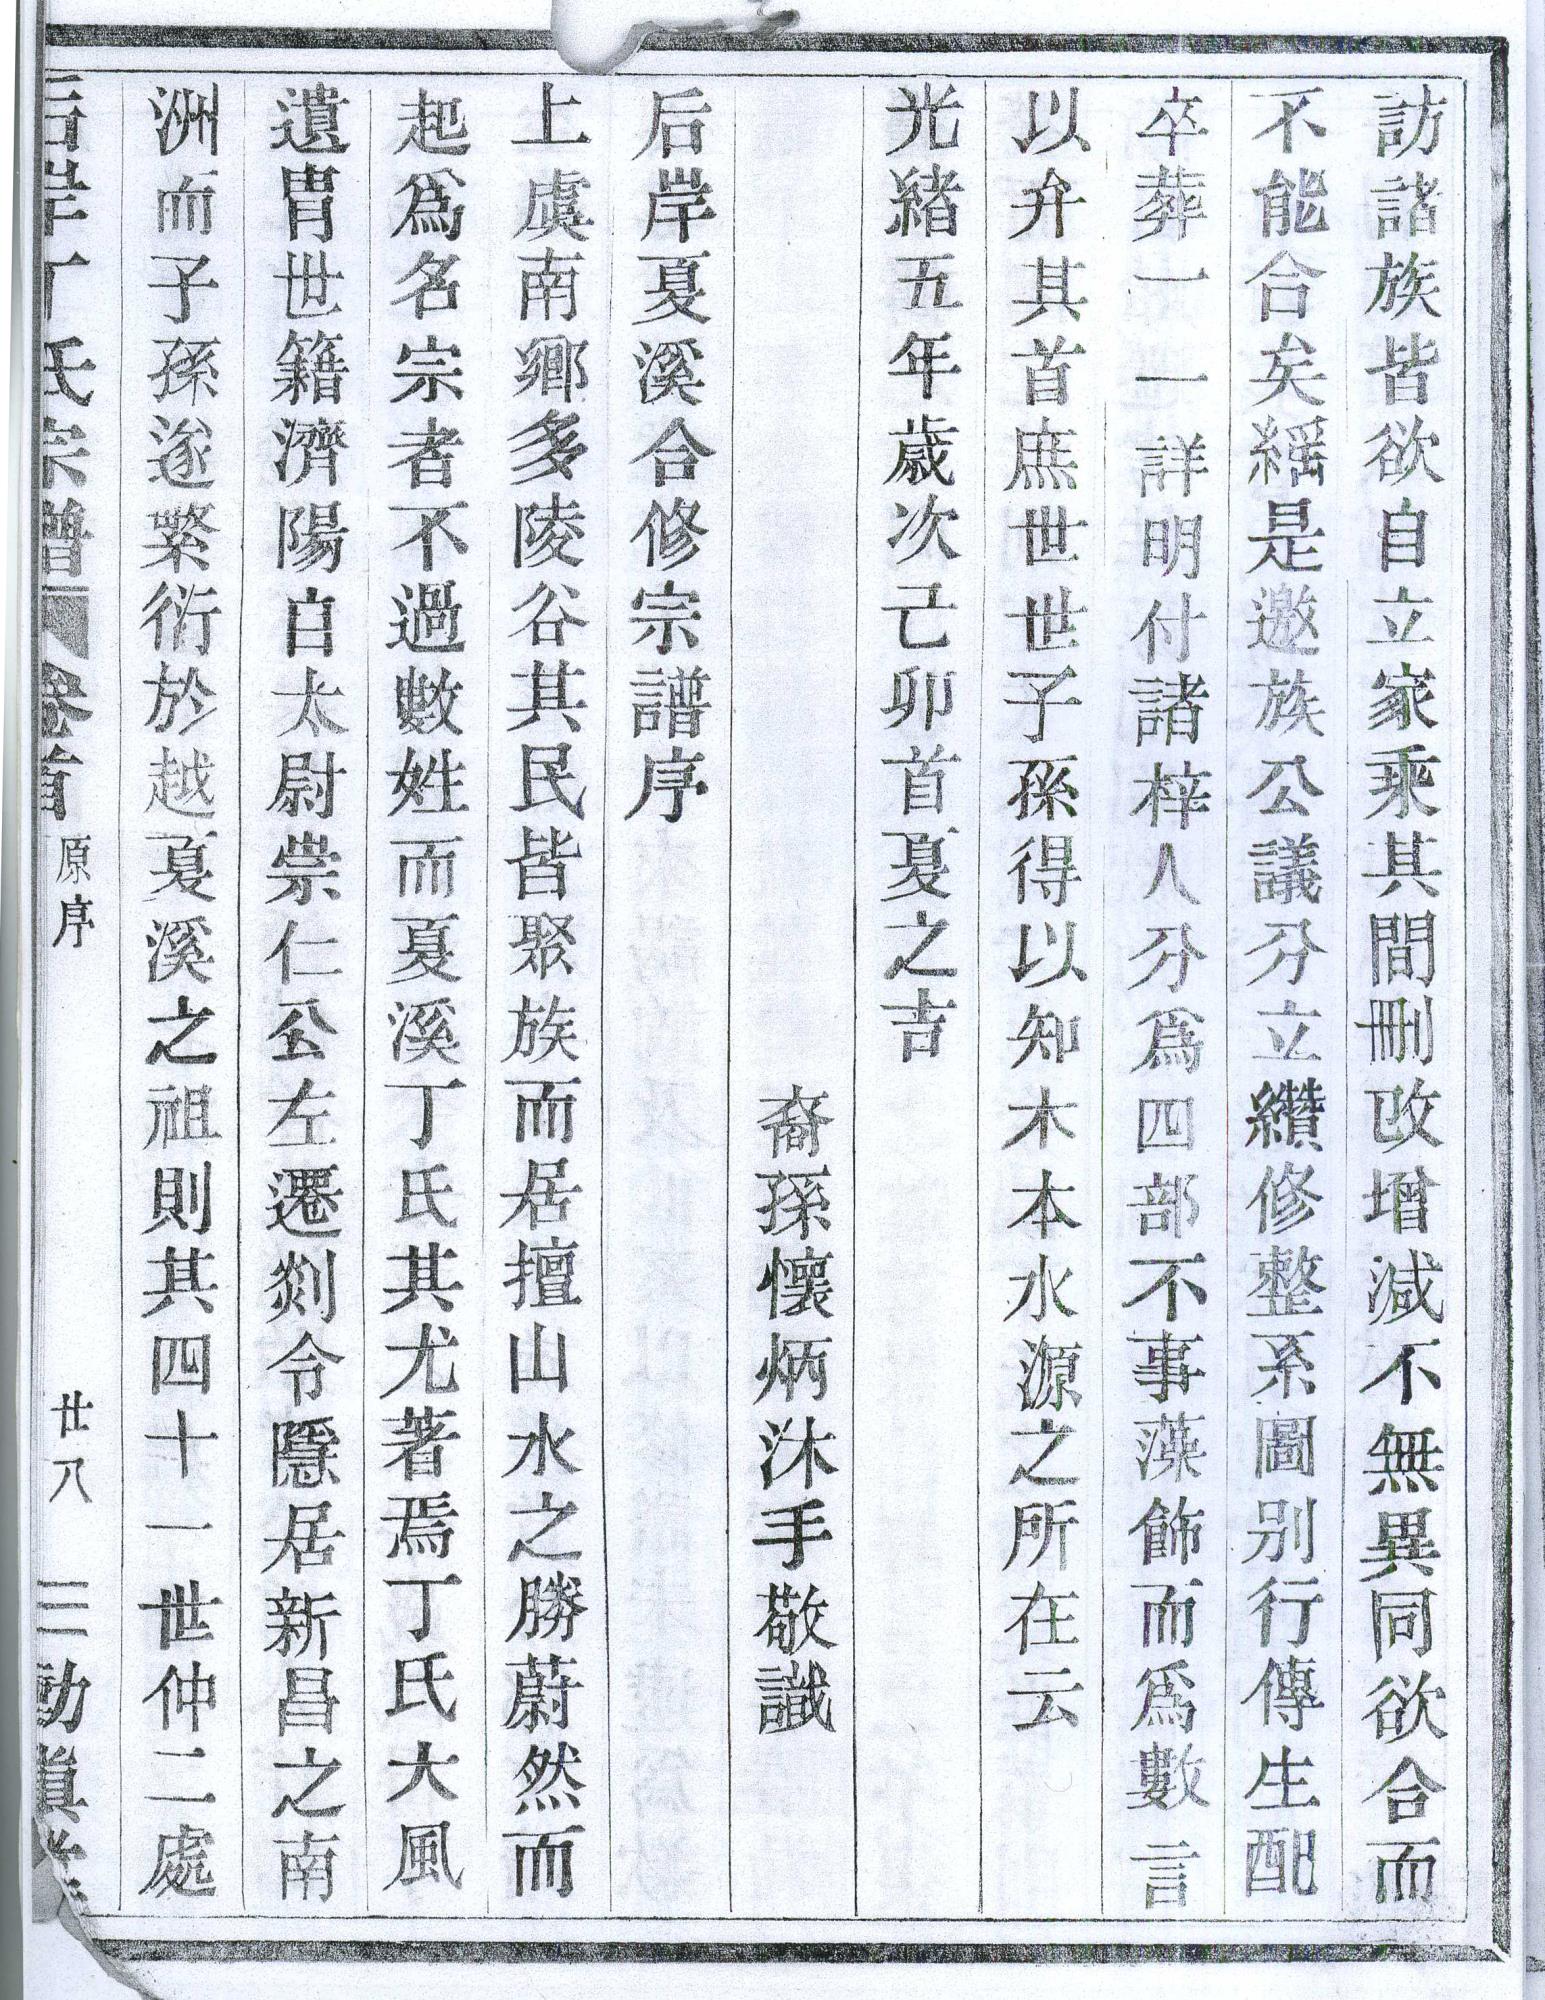 訪諸族皆欲自立家乘其間刪改增減不無異同欲合而
不能合矣繇是邀族公議分立纘修整系圖别行傳生配
卒葬一一詳明付諸梓人分爲四部不事藻飾而爲數言
以弁其首庶世世子孫得以知木本水源之所在云
光緒五年歲次己卯首夏之吉
裔孫懷炳沐手敬識
后岸夏溪合修宗譜序
上虞南鄉多陵谷其民皆聚族而居擅山水之勝蔚然而
起爲名宗者不過數姓而夏溪丁氏其尤著焉丁氏大風
遺胄世籍濟陽自太尉崇仁公左遷剡令隱居新昌之南
洲而子孫遂繁衍於越夏溪之祖則其四十一世仲二處
后岸丁氏宗譜 卷首 原序 廿八